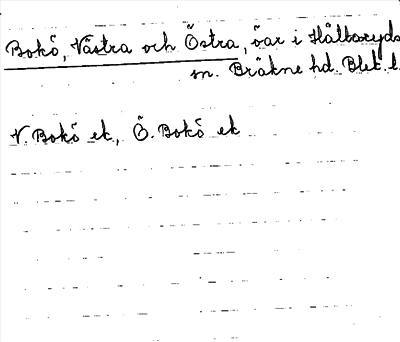 Bokö, Västra och Östra, öar i Hällaryds
sn. Bräkne hd. Blek. l.
V. Bokö ek, Ö. Bokö ek